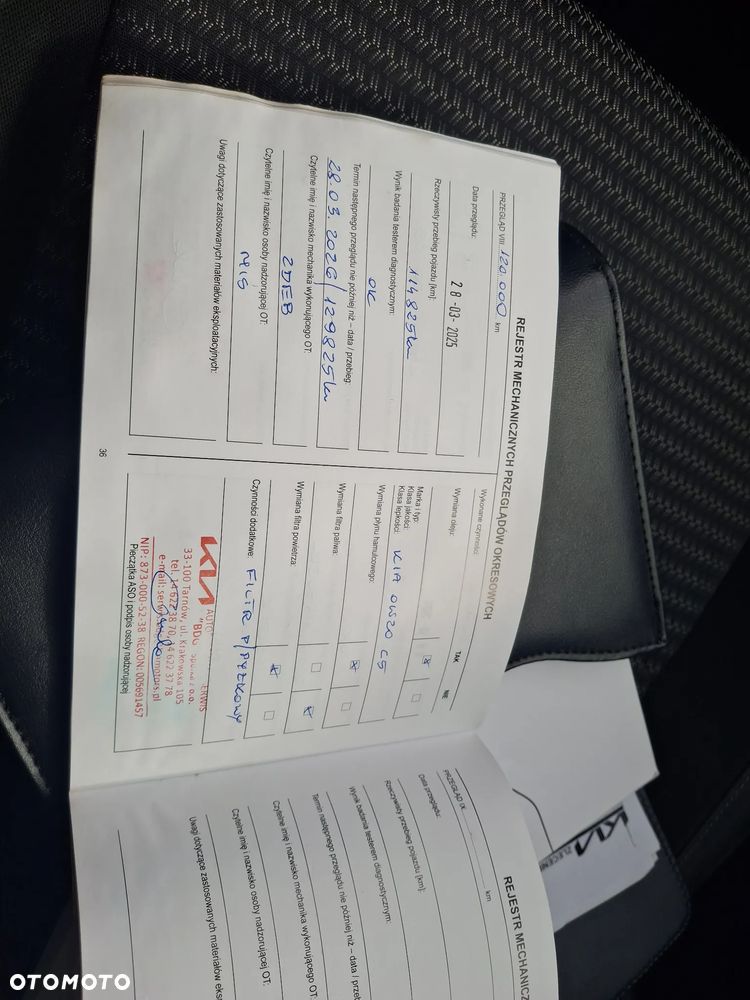 REJESTR MECHANICZNYCH PRZEGLĄDÓW OKRESOWYCH
PRZEGLĄD VIII 120.000 km
Data przeglądu:
28-03-2025
Rzeczywisty przebieg pojazdu [km]:
114825km
Wynik badania testerem diagnostycznym:
OK
Termin następnego przeglądu nie później niż – data / przebieg:
28.03.2026/129825km
Czytelne imię i nazwisko mechanika wykonującego OT:
ZDEB
Czytelne imię i nazwisko osoby nadzorującej OT:
MIS
Uwagi dotyczące zastosowanych materiałów eksploatacyjnych:
36
Wykonane czynności: TAK NIE
Wymiana oleju:
Marka i typ:
Klasa jakości:
Klasa lepkości:
KIA 0W20 C5
Wymiana płynu hamulcowego:
Wymiana filtra paliwa:
Wymiana filtra powietrza:
Czynności dodatkowe: FILTR P/PYŁKOWY
KIA
33-100 Tarnów, ul. Krakowska 105
NIP: 873-000-52-38 REGON: 005691457
Pieczątka ASO i podpis osoby nadzorującej
REJESTR MECHANICZ
PRZEGLĄD IX km
Data przeglądu:
Rzeczywisty przebieg pojazdu [km]:
Wynik badania testerem diagnostycznym:
Termin następnego przeglądu nie później niż – data / przeb
Czytelne imię i nazwisko mechanika wykonującego OT:
Czytelne imię i nazwisko osoby nadzorującej OT:
Uwagi dotyczące zastosowanych materiałów eks
KIA
ZLECENI
OTOMOTO